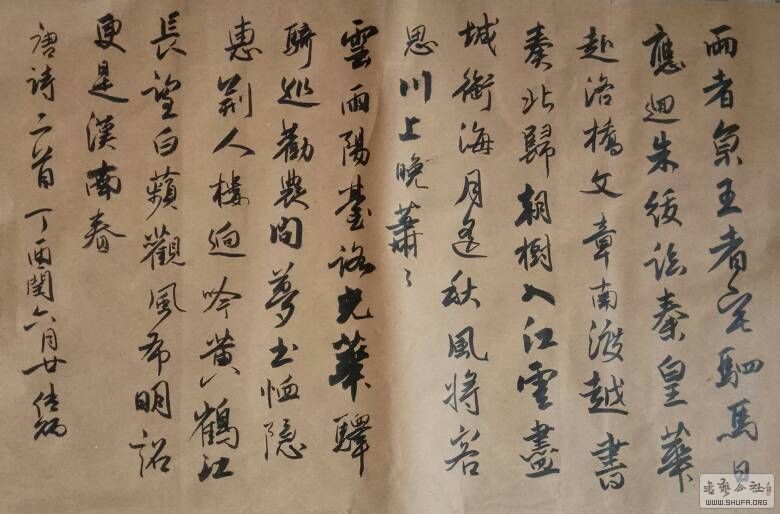 兩者京王者宅駟馬日
應迴朱紱詠秦皇華
赴洛橋文章南渡越書
奏北歸朝樹入江雲盡
城銜海月遙秋風將客
思川上晚蕭々
雲雨陽臺路光華驛
騎巡勸農問夢土恤隱
惠荊人樓迥吟黃鶴江
長望白蘋觀風布明詔
更是漢南春
唐詩二首 丁酉閏六月廿
書藝公社
WWW.SHUFA.ORG